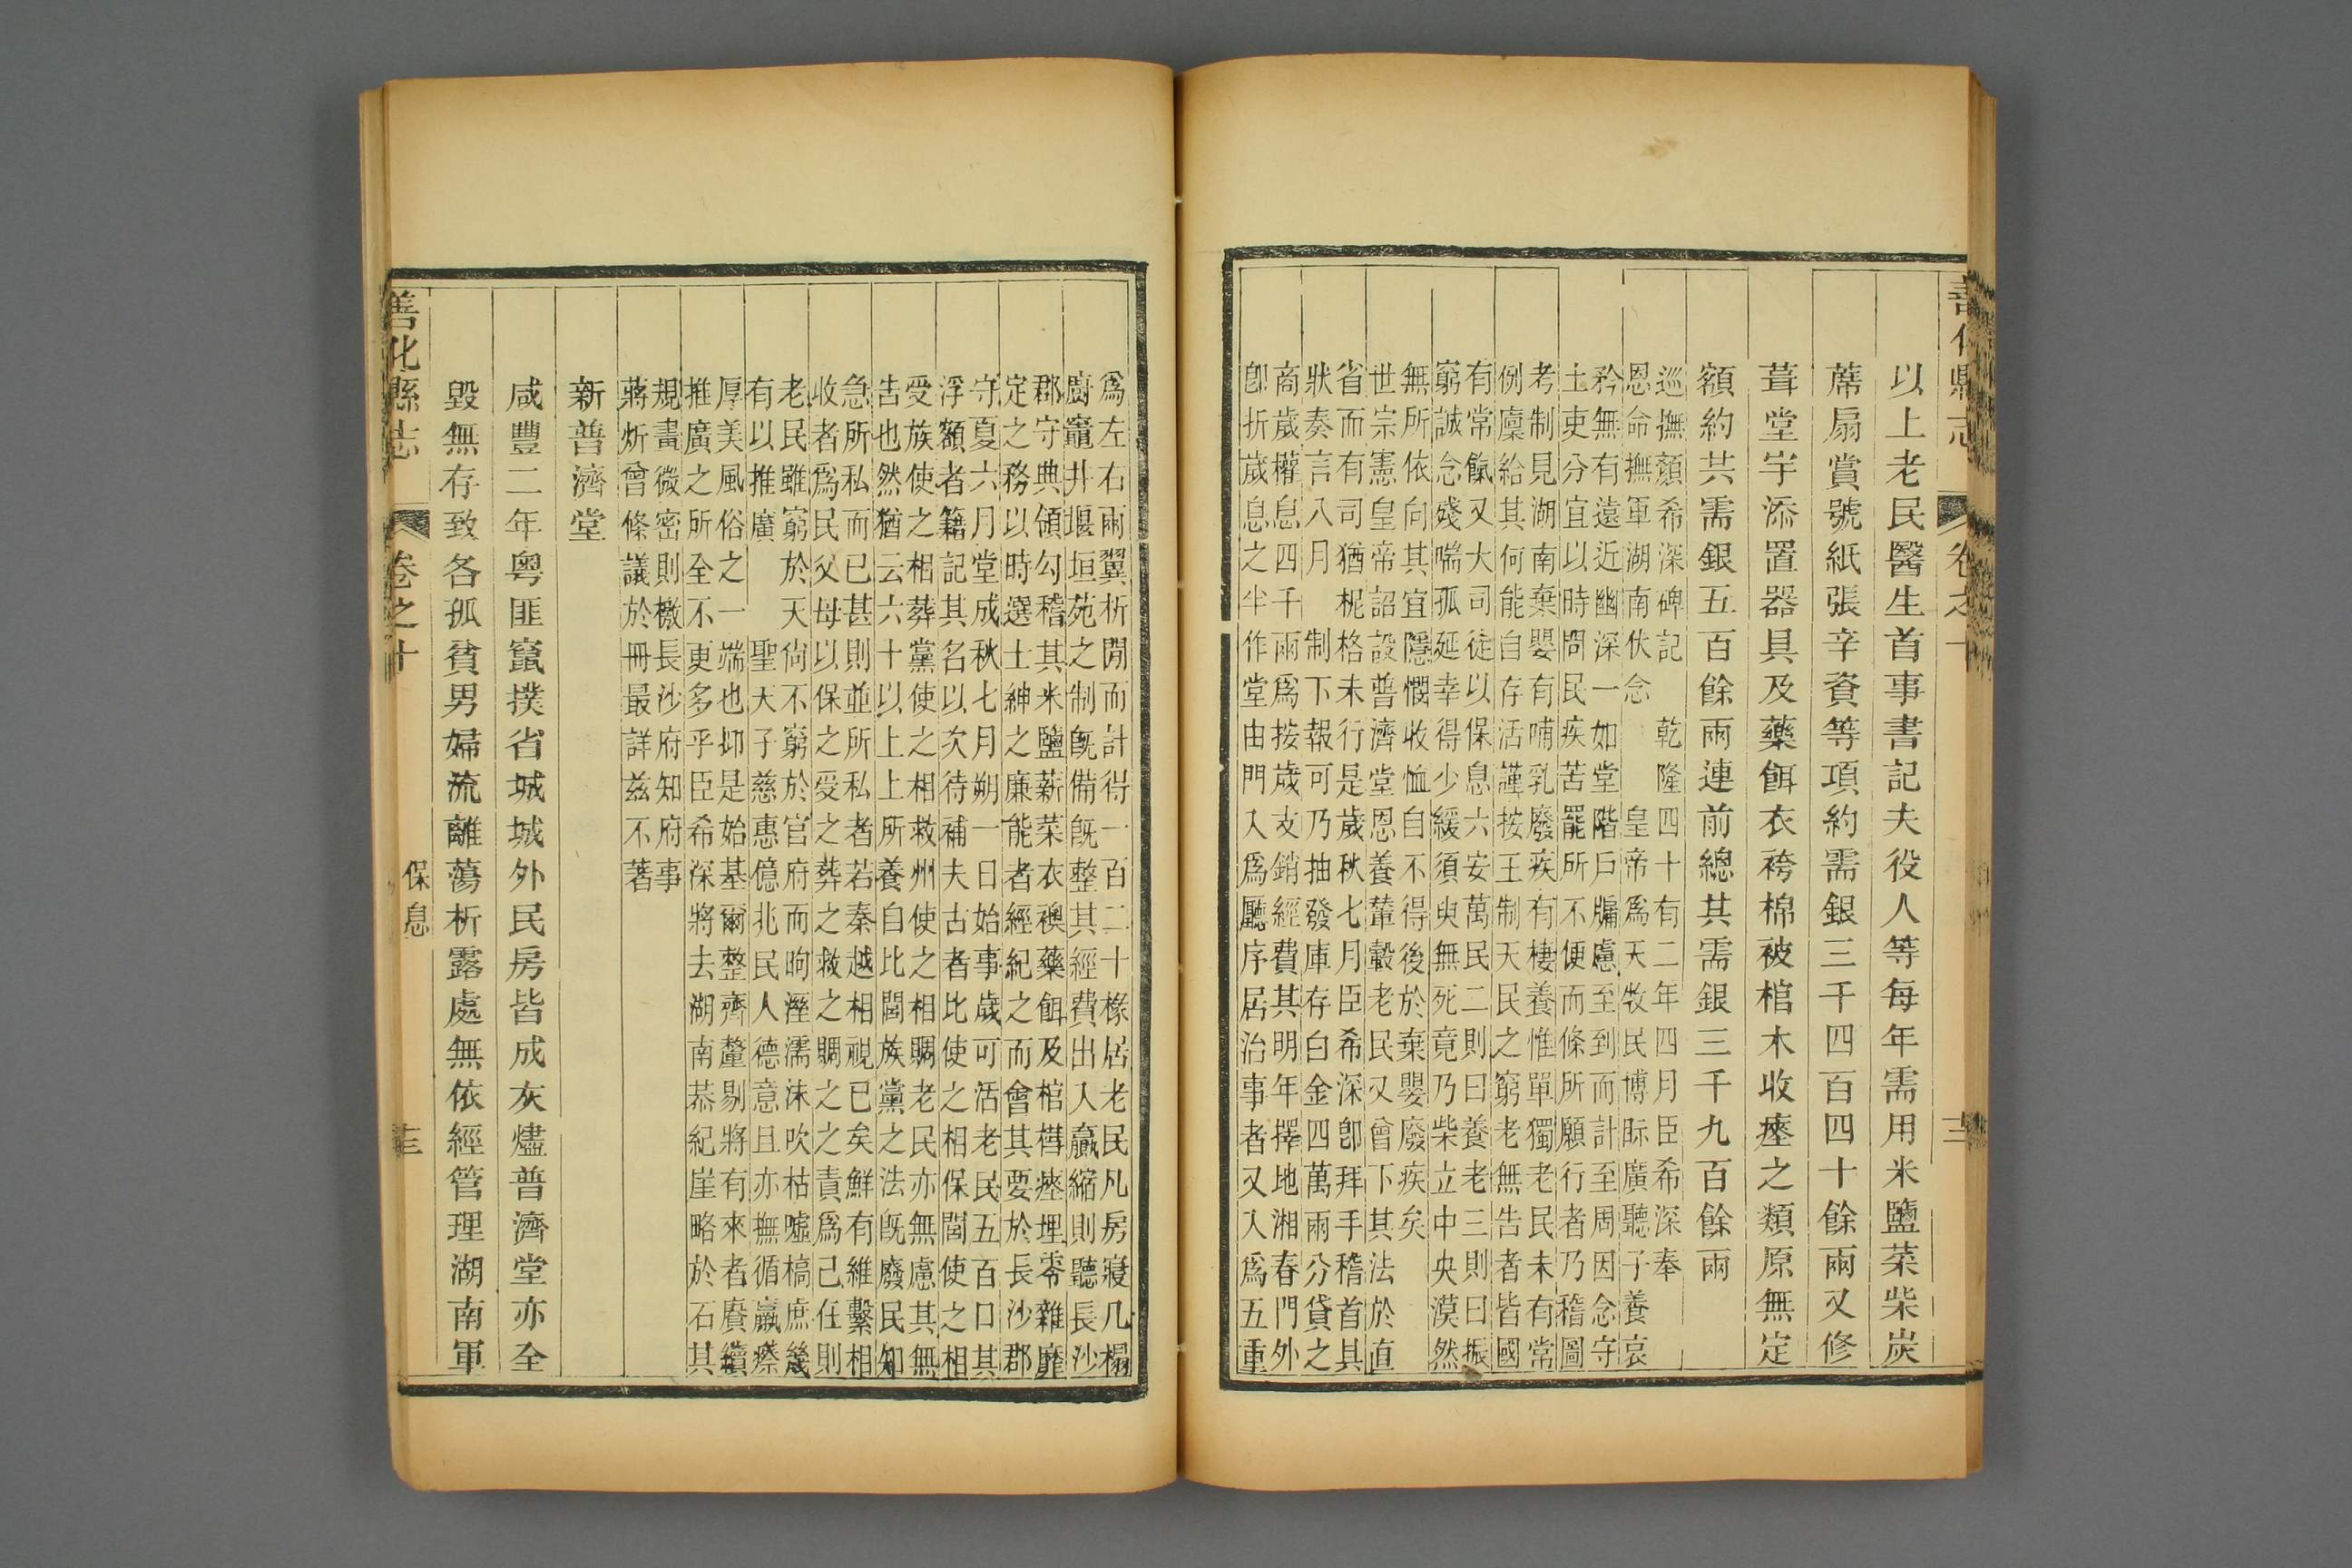 善化縣志 卷之十
以上老民醫生首事書記夫役人等每年需用米鹽菜柴炭
蓆扇賞號紙張辛資等項約需銀三千四百四十餘兩又修
葺堂宇添置器具及藥餌衣袴棉被棺木收瘞之類原無定
額約共需銀五百餘兩連前總共需銀三千九百餘兩
巡撫顏希深碑記 乾隆四十有二年四月臣希深奉
恩命撫軍湖南伏念 皇帝為天牧民博眎廣聽子養哀
矜無有遠近幽深一如堂階戶牖慮至到而計至周因念守
土吏分宜以時問民疾苦罷所不便而條所願行者乃稽圖
考制見湖南棄嬰有哺乳廢疾有棲養惟單獨老民未有常
例廩給其何能自存活謹按王制天民之窮老無告者皆國
有常餼又大司徒以保息六安萬民二則曰養老三則曰振
窮誠念殘喘孤延幸得少緩須臾無死竟乃柴立中央漠然
無所依向其宜隱憫收恤自不得後於棄嬰廢疾矣
世宗憲皇帝詔設普濟堂恩養輦轂老民又曾下其法於直
省而有司猶柅格未行是歲秋七月臣希深卽拜手稽首具
狀奏言八月 制下報可乃抽發庫存白金四萬兩分貸之
商歲權息四千兩為按歲支銷經費其明年擇地湘春門外
卽折歲息之半作堂由門入為廳序居治事者又入為五重
為左右兩翼析閒而計得一百二十椽居老民凡房寢几榻
廚竈井堰垣苑之制旣備旣整其經費出入贏縮則聽長沙
郡守典領勾稽其米鹽薪菜衣襖藥餌及棺槥瘞埋零雜靡
定之務以時選士紳之廉能者經紀之而會其要於長沙郡
守夏六月堂成秋七月朔一日始事歲可活老民五百口其
浮額者籍記其名以次待補夫古者比使之相保閭使之相
受族使之相葬黨使之相救州使之相賙老民亦無慮其無
告也然猶云六十以上上所養自比閭族黨之法旣廢民知
急所私而已甚則並所私者若秦越相視已矣鮮有維繫相
收者為民父母以保之受之葬之救之賙之之責為己任則
老民雖窮於天尙不窮於官府而呴溼濡沫吹枯噓槁庶幾
有以推廣 聖天子慈惠億兆民人德意且亦撫循羸瘵
厚美風俗之一端也抑是始基爾整齊釐剔將有來者賡續
推廣之所全不更多乎臣希深將去湖南恭紀崖略於石其
規畫微密則檄長沙府知府事
蔣炘曾條議於冊最詳兹不著
新普濟堂
咸豐二年粤匪竄撲省城城外民房皆成灰燼普濟堂亦全
毀無存致各孤貧男婦流離蕩析露處無依經管理湖南軍
善化縣志 卷之十 保息